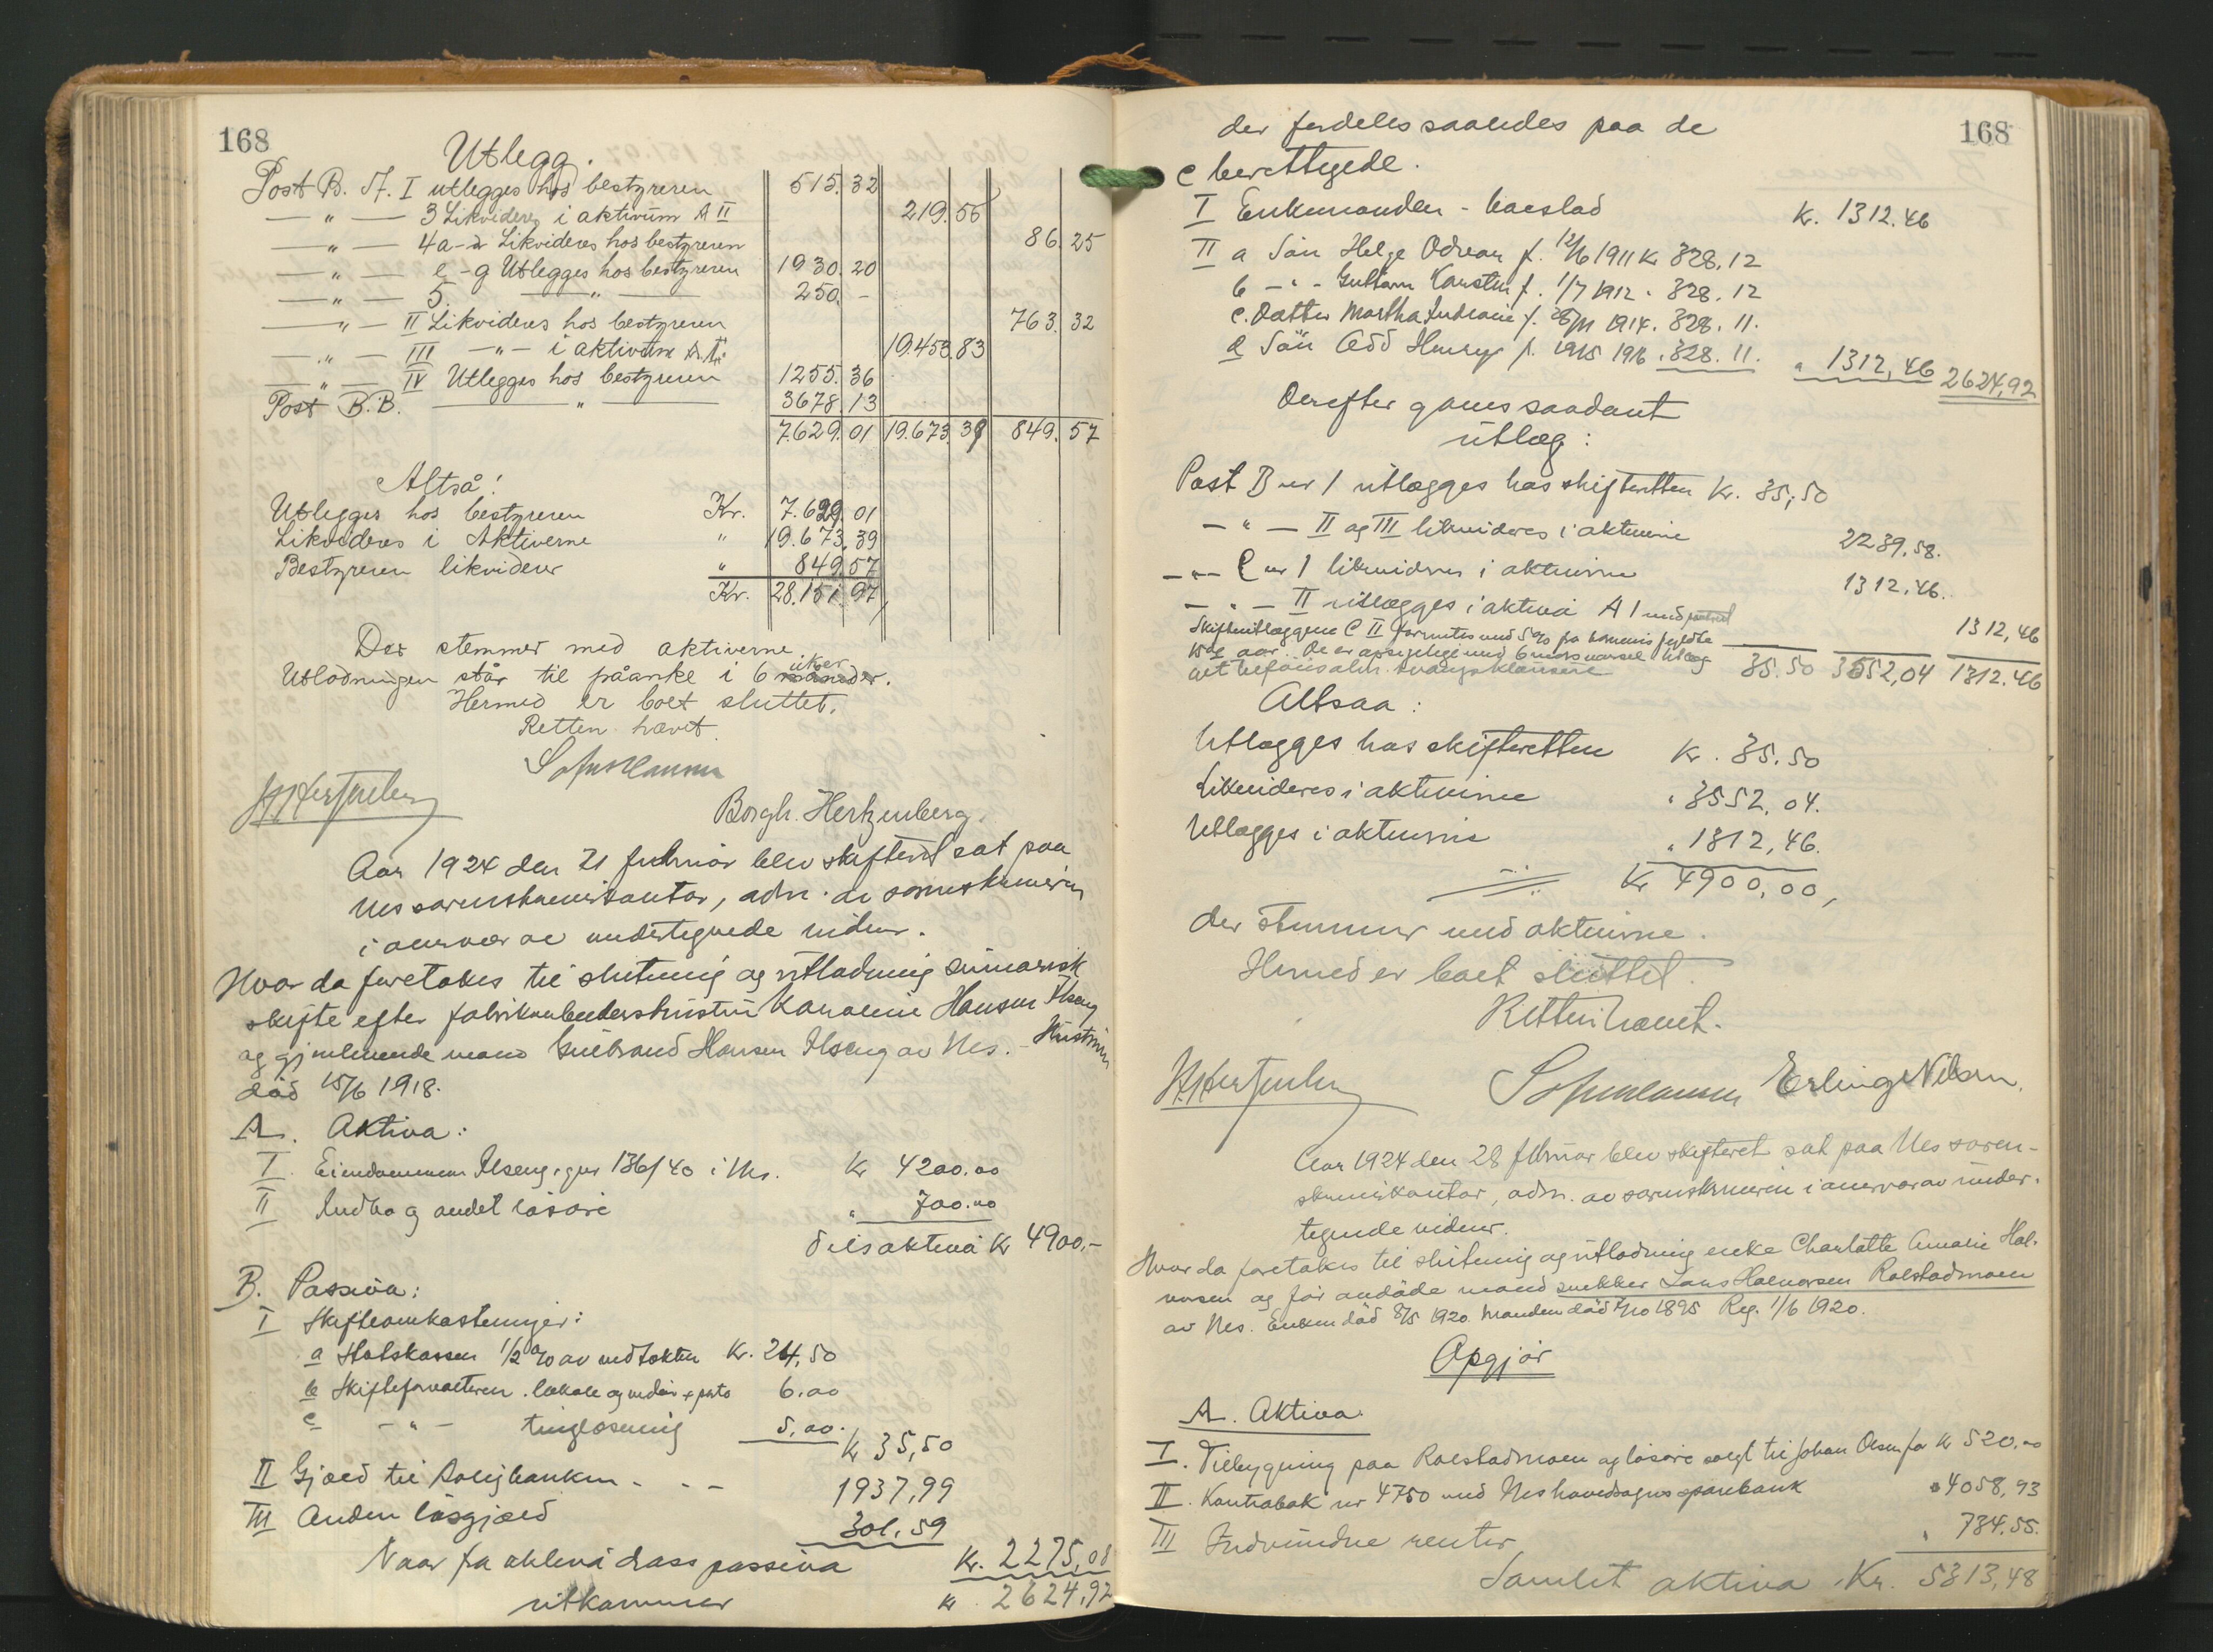 168
Utlegg.
Post B. A. I utlegges hos bestyreren 515.32
—"— 3 Likvideres i aktivum A II 219.56
—"— 4a-d Likvideres hos bestyreren 86.25
—"— e-g Utlegges hos bestyreren 1930.20
—"— 5. —"— 250.-
—"— II Likvideres hos bestyreren 763.32
—"— III —"— i aktivum A.I. 19.453.83
—"— IV Utlegges hos bestyreren 1255.36
Post B.B. —"— 3678.13
7.629.01 19.673.39 849.57
Altså!
Utlegges hos bestyreren Kr. 7.629.01
Likvideres i Aktiverne " 19.673.39
Bestyreren likviderer " 849.57
Kr. 28.151.97
Der stemmer med aktiverne.
Utlodningen står til påanke i 6 uker.
Hermed er boet sluttet.
Retten hævet.
Borgh. Hertzenberg.
Aar 1924 den 21 februar blev skifteret sat paa
Nes sorenskriverkontor, adm. av sorenskriveren
i overvær av undertegnede vidner.
Hvor da foretakes til slutning og utlodning sumarisk
skifte efter fabrikarbeiderhustru Karoline Hansen Ilseng
og gjenlevende mand Gulbrand Hansen Ilseng av Nes. - Hustruen
död 15/6 1918.
A. Aktiva:
I. Eiendommen Ilseng, gnr 136/40 i Nes. Kr 4200.00
II Indbo og andet lösöre " 700.00
Tils aktiva Kr 4900,-
B. Passiva:
I Skifteomkostninger:
a Statskassen 1/2 % av nedtokten Kr. 24,50
b Skifteforvalteren. lokale og vidner + porto 6.00
c -"- tinglæsning 5,00. Kr 35,50
II Gjæld til Boligbanken - - - 1937,99
III Anden lösgjæld 301.59
Naar fra aktiva drass passiva Kr. 2275,08
utkommer Kr. 2624,92
168
der fordeles saaledes paa de
C berettigede.
I Enkemanden - boeslod Kr. 1312.46
II a Sön Helge Odvar f. 12/6 1911 Kr 328.12
b -"- Gulbran Karsten f. 1/7 1912 " 328.12
c. Datter Martha Andreaie f. 28/11 1914. 328.11.
d Sön Odd Henry f. 19/5 1916. 328.11. " 1312,46 2624,92
Derefter gjøres saadant
utlæg:
Post B nr 1 utlægges hos skifteretten Kr. 35,50
-"- II og III likvideres i aktiverne 2239.58.
-"- C nr 1 likvideres i aktiverne 1312,46.
-"- II utlægges i aktiva A 1 med 1312,46
Skifteutlæggene C II forrentes med 5% fra barnenes fyldte
15de aar. De er opsigelige med 6 mdrs varsel
35.50 3552,04 1312.46
Altsaa:
Utlægges hos skifteretten Kr. 35.50
Likvideres i aktiverne " 3552,04.
Utlægges i aktiverne " 1312,46.
Kr 4900,00,
der stemmer med aktiverne.
Hermed er boet sluttet.
Retten hævet.
Erling Nilsen.
Aar 1924 den 28 februar blev skifteret sat paa Nes soren-
skriverkontor, adm. av sorenskriveren i overvær av under-
tegnede vidner.
Hvor da foretakes til slutning og utlodning enke Charlotte Amalie Hal-
vorsen og för avdöde mand snekker Lars Halvorsen Rolstadmoen
av Nes. Enken död 8/5 1920. Manden död 7/10 1895 Reg. 1/6 1920.
Opgjör
A. Aktiva.
I. Tilbygning paa Rolstadmoen og lösöre solgt til Johan Olsen for Kr 520.00
II. Kontrabok nr 4750 med Nes hovedsogns sparebank " 4058,93
III Indvundne renter " 734.55.
Samlet aktiva. Kr. 5313,48